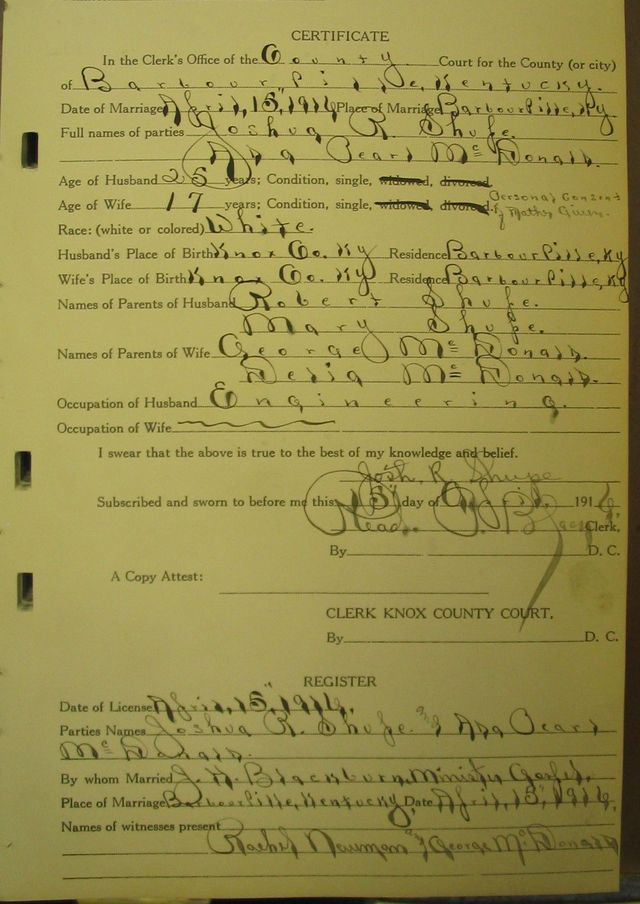 CERTIFICATE
In the Clerk's Office of the County Court for the County (or city)
of Barbourville, Kentucky.
Date of Marriage April, 15", 1916 Place of Marriage Barbourville, Ky
Full names of parties Joshua R. Shupe.
Ada Pearl McDonald.
Age of Husband 25 years; Condition, single, widowed, divorced.
Age of Wife 17 years; Condition, single, widowed, divorced. Personal Consent
of Mother Given.
Race: (white or colored) White.
Husband's Place of Birth Knox Co. Ky Residence Barbourville, Ky
Wife's Place of Birth Knox Co. Ky Residence Barbourville, Ky
Names of Parents of Husband Robert Shupe.
Mary Shupe.
Names of Parents of Wife George McDonald.
McDonald.
Occupation of Husband Engineering.
Occupation of Wife
I swear that the above is true to the best of my knowledge and belief.
Josh. R. Shupe
Subscribed and sworn to before me this 15" day of April, 1916,
Read P. Black Clerk,
By D. C.
A Copy Attest:
CLERK KNOX COUNTY COURT,
By D. C.
REGISTER
Date of License April, 15", 1916,
Parties Names Joshua R. Shupe. & Ada Pearl
McDonald.
By whom Married J. H. Blackburn, Minister Gospel,
Place of Marriage Barbourville, Kentucky, Date April, 15", 1916,
Names of witnesses present
Rachel Neuman & George McDonald